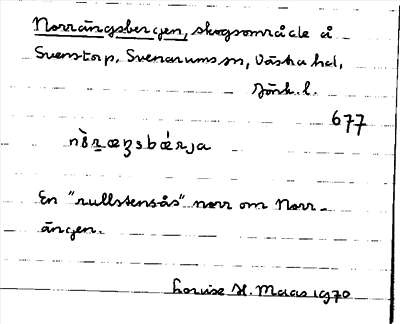 Norrängsbergen, skogsområde å
Svenstorp, Svenarums sn, Västra hd,
Jönk. l.
677
En "rullstensås" norr om Norr-
ängen.
Louise H. Maas 1970